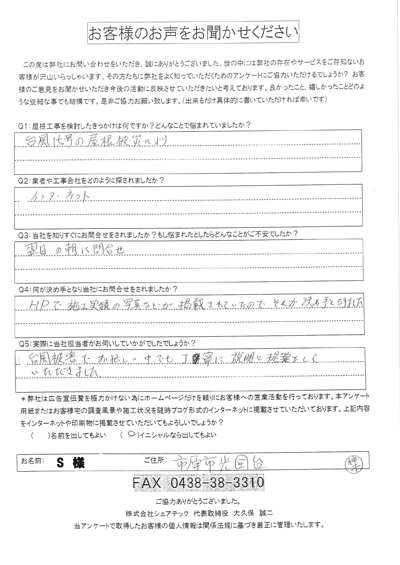 お客様のお声をお聞かせください
この度は弊社にお問い合わせをいただき、誠にありがとうございました。世の中には弊社の存在やサービスをご存知ないお
客様が沢山いらっしゃいます。その方たちに弊社をよく知っていただくためのアンケートにご協力いただけるでしょうか? お客
様のご意見をお聞かせいただき今後の活動に反映させていただきたいと考えております。良かったこと、嬉しかったことどのよ
うな些細な事でも結構です、是非ご協力お願い致します。(出来るだけ具体的に書いていただければ幸いです)
Q1:屋根工事を検討したきっかけは何ですか?どんなことで悩まれていましたか?
台風15号の屋根被災により
Q2:業者や工事会社をどのように探されましたか?
インターネット
Q3:当社を知りすぐにお問合せをされましたか?もし悩まれたとしたらどんなことがご不安でしたか?
翌日の朝に問合せ
Q4:何が決め手となり当社にお問合せをされましたか?
HPで施工実績の写真などが掲載されていたので、それが決め手となりました
Q5:実際に当社担当者がお伺いしていかがでしたでしょうか?
台風被害でお忙しい中でも丁寧に説明と移動をして
いただきました。
*弊社は広告宣伝費を極力かけない為にホームページだけを頼りにお客様への営業活動を行っております。本アンケート
用紙またはお客様宅の調査風景や施工状況を随時ブログ形式のインターネットに掲載させていただいております。上記内容
をインターネットや印刷物に掲載させていただいてもよろしいでしょうか?
( )名前を出してもよい (○)イニシャルなら出してもよい
お名前: S 様 ご住所: 市原市光風台
FAX 0438-38-3310
ご協力ありがとうございました。
株式会社シェアテック 代表取締役 大久保 誠二
当アンケートで取得したお客様の個人情報は関係法規に基づき厳正に管理いたします。